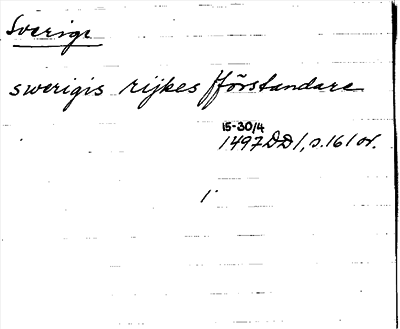 Sverige
swerigis rijkes fförstandare
15-30/4
1497 DD1, s.161 or.
1